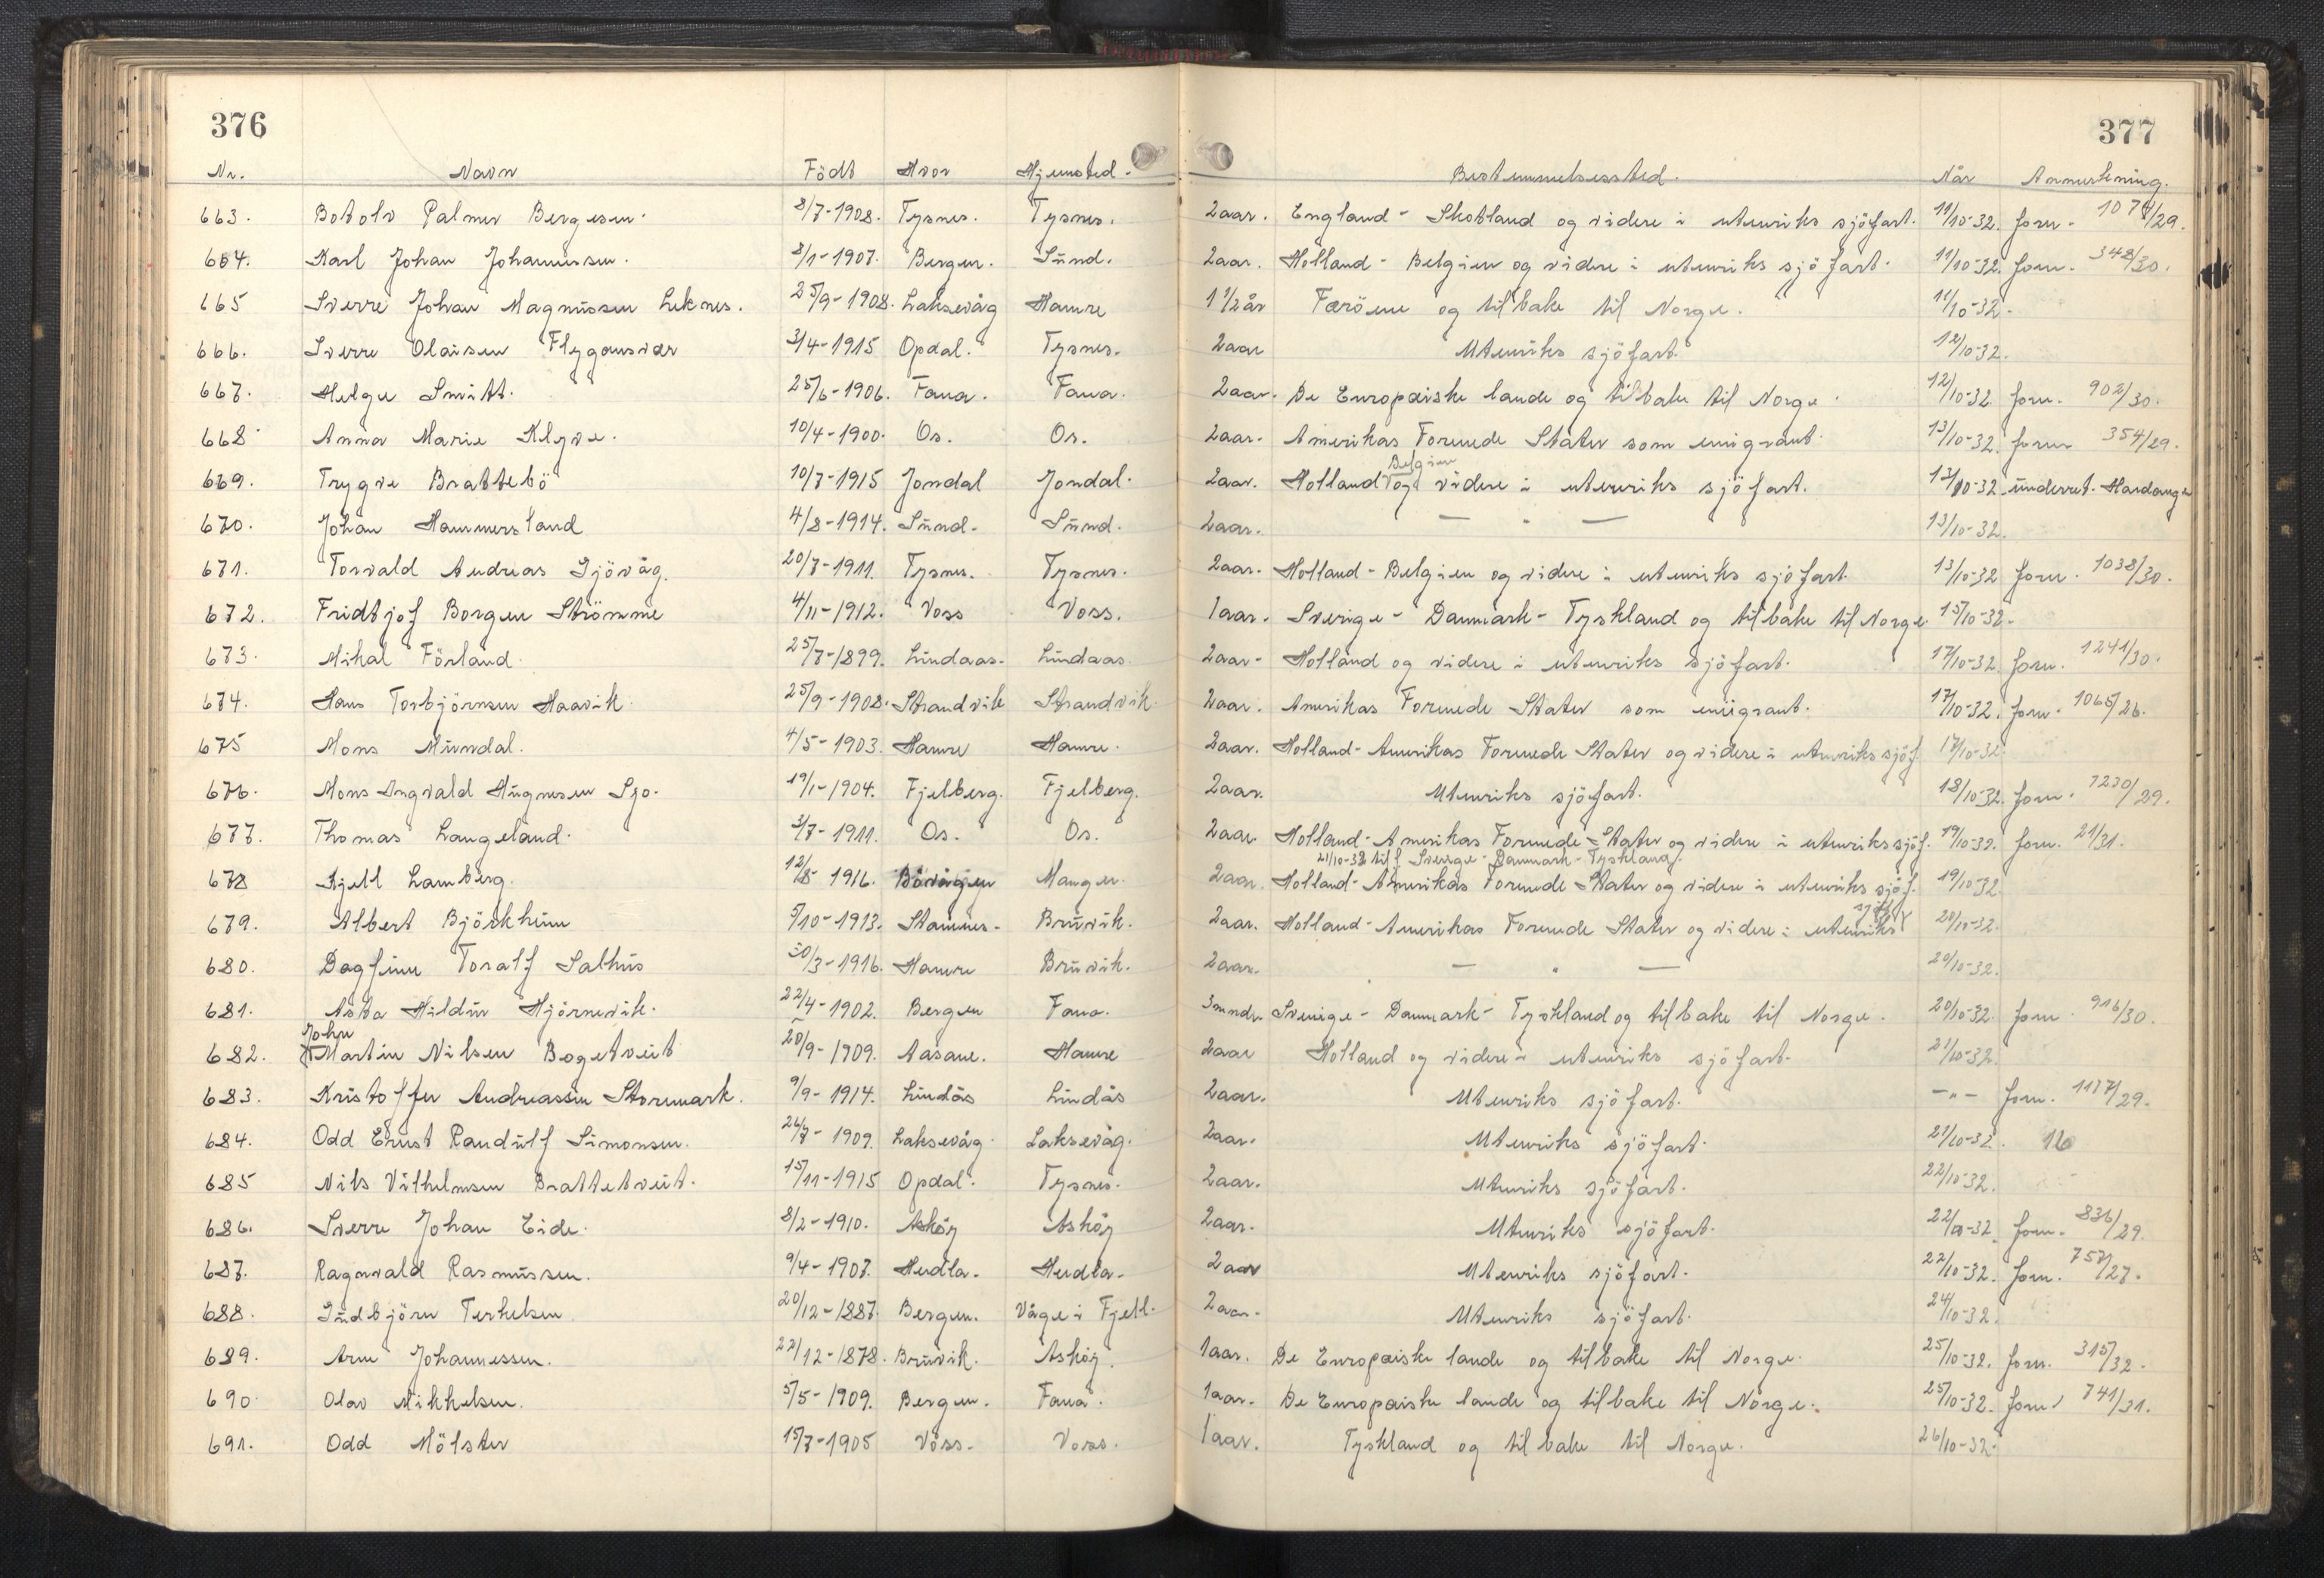 376
377
Nr. Navn Födt Hvor Hjemsted. Bestemmelsessted. Når Anmerkning.
663. Botolv Palmer Bergesen. 8/7-1908. Tysnes. Tysnes. 2aar. England - Skotland og videre i utenriks sjöfart. 11/10-32. forn. 1074/29.
664. Karl Johan Johannessen. 8/1-1907. Bergen. Sund. 2aar. Holland - Belgien og videre i utenriks sjöfart. 11/10-32. forn. 348/30.
665 Sverre Johan Magnussen Leknes. 25/9-1908. Laksevåg Hamre 1 1/2 år Færöene og tilbake til Norge. 11/10-32.
666. Sverre Olaisen Flygansvær 3/4-1915 Opdal. Tysnes. 2aar Utenriks sjöfart. 12/10-32.
667. Helge Smitt. 25/6-1906. Fana. Fana. 2aar. De Europæiske lande og tilbake til Norge. 12/10-32. forn. 902/30.
668. Anna Marie Klyve. 10/4-1900. Os. Os. 2aar. Amerikas Forenede Stater som emigrant. 13/10-32. forn. 354/29.
669. Trygve Brattebö 10/7-1915 Jondal Jondal. 2aar. Holland Belgien og videre i utenriks sjöfart. 13/10-32 underret. Hardanger
670. Johan Hammersland 4/8-1914. Sund. Sund. 2aar. — " — 13/10-32.
671. Torvald Andreas Gjövåg. 20/7-1911. Tysnes. Tysnes. 2aar. Holland - Belgien og videre i utenriks sjöfart. 13/10-32 forn. 1038/30.
672. Fridtjof Borgen Strömme 4/11-1912. Voss Voss. 1aar. Sverige - Danmark - Tyskland og tilbake til Norge 15/10-32.
673. Mikal Förland. 25/7-1899. Lindaas. Lindaas 2aar. Holland og videre i utenriks sjöfart. 17/10-32. forn. 1241/30.
674. Hans Torbjörnsen Haavik. 25/9-1908. Strandvik Strandvik 2aar. Amerikas Forenede Stater som emigrant. 17/10-32. forn. 1065/26.
675 Mons Mundal. 4/5-1903. Hamre Hamre. 2aar. Holland - Amerikas Forenede Stater og videre i utenriks sjöf. 17/10-32.
676. Mons Ingvald Hugnesen Sjo. 19/1-1904. Fjelberg. Fjelberg. 2aar. Utenriks sjöfart. 18/10-32. forn. 1230/29.
677. Thomas Langeland. 3/7-1911. Os. Os. 2aar Holland - Amerikas Forenede Stater og videre i utenriks sjöf. 19/10-32. forn. 21/31.
21/10-32 til Sverige - Danmark - Tyskland.
678 Kjell Lamberg. 12/8-1916. Bövågen Manger. 2aar. Holland - Amerikas Forenede Stater og videre i utenriks sjöf. 19/10-32
679. Albert Björkheim 5/10-1913. Stamnes. Bruvik. 2aar. Holland - Amerikas Forenede Stater og videre i utenriks sjöf. 20/10-32.
680. Dagfinn Toralf Salhus 30/3-1916. Hamre Bruvik. 2aar. — " — 20/10-32.
681. Asta Hildur Hjörnevik. 22/4-1902. Bergen Fana. 3mndr. Sverige - Danmark - Tyskland og tilbake til Norge. 20/10-32. forn. 916/30.
682. John Martin Nilsen Bogetveit 20/9-1909. Aasane. Hamre 2aar Holland og videre i utenriks sjöfart. 21/10-32.
683. Kristoffer Andreassen Storemark. 9/9-1914. Lindås Lindås 2aar. Utenriks sjöfart. -"- forn. 1137/29.
684. Odd Ernst Randulf Simonsen. 26/7-1909. Laksevåg. Laksevåg. 2aar. Utenriks sjöfart. 21/10-32. 16
685 Nils Vilhelmsen Brattetveit. 15/11-1915 Opdal. Tysnes. 2aar. Utenriks sjöfart. 22/10-32.
686. Sverre Johan Eide. 8/2-1910. Asköy Asköy 2aar. Utenriks sjöfart. 22/10-32. forn. 836/29.
687. Ragnvald Rasmussen. 9/4-1907. Herdla. Herdla. 2aar Utenriks sjöfart. 22/10-32. forn. 757/27.
688. Gudbjörn Terkelsen 20/12-1887. Bergen. Våge i Fjell. 2aar. Utenriks sjöfart. 24/10-32.
689. Arne Johannessen. 22/12-1878. Bruvik. Asköy. 1aar. De Europæiske lande og tilbake til Norge. 25/10-32. forn. 315/32.
690. Olav Mikkelsen. 5/5-1909. Bergen. Fana. 1aar. De Europæiske lande og tilbake til Norge. 25/10-32. forn. 741/31.
691. Odd Mölster 15/7-1905 Voss. Voss. 1aar. Tyskland og tilbake til Norge. 26/10-32.